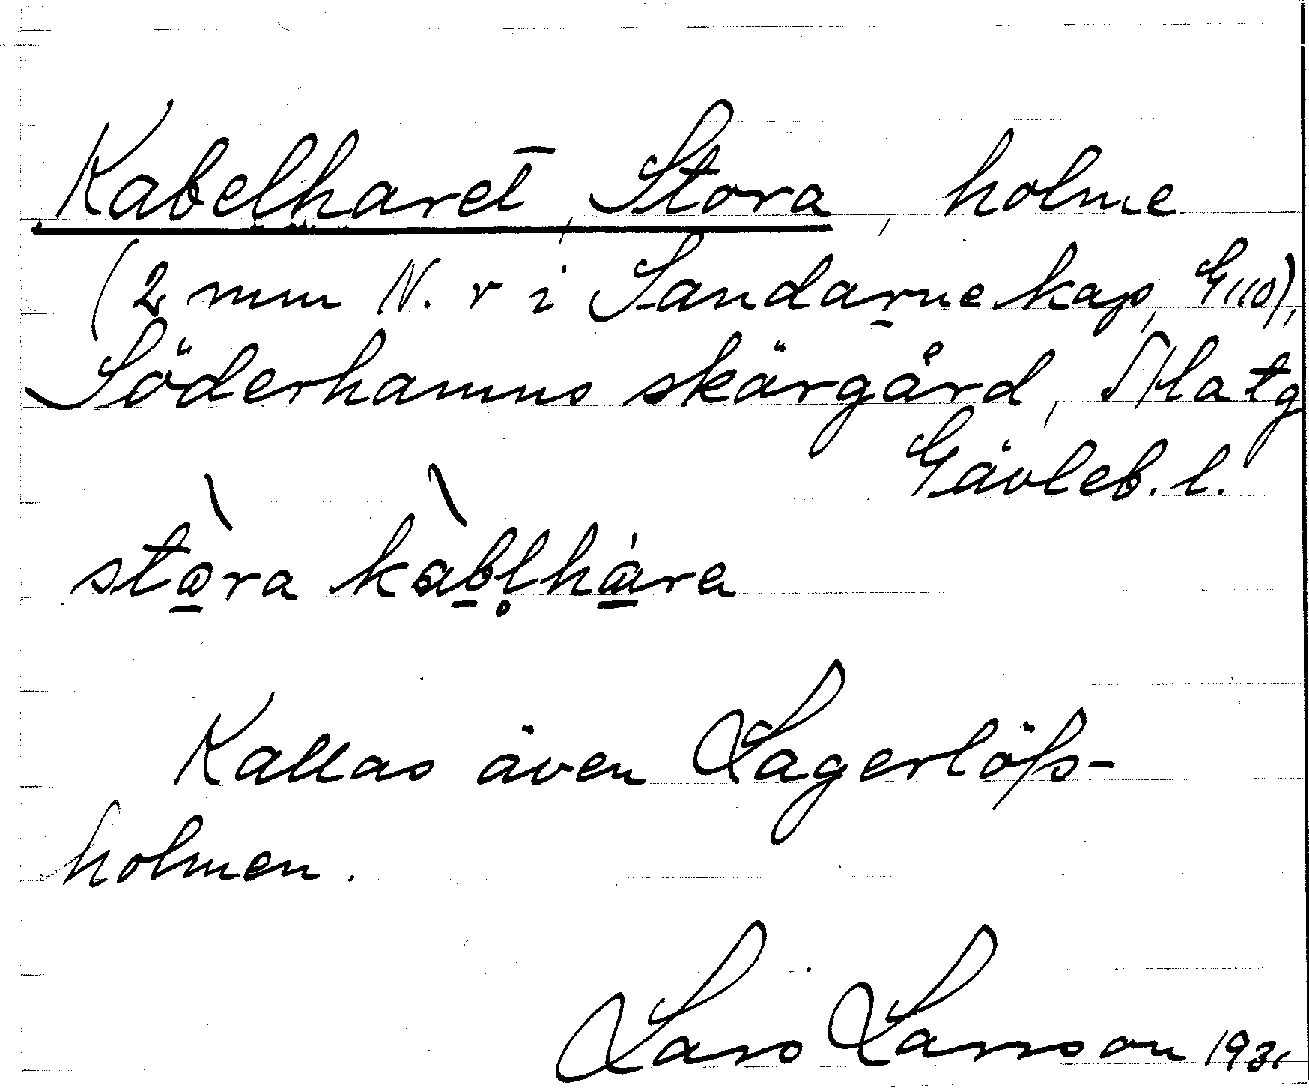 Kabelharet, Stora, holme
(2 mm N. r i Sandarne kap, G110),
Söderhamns skärgård,
Gävleb. l.
stòra kàbl̥hàra
Kallas även Lagerlöfs-
holmen.
Lars Larsson 1931